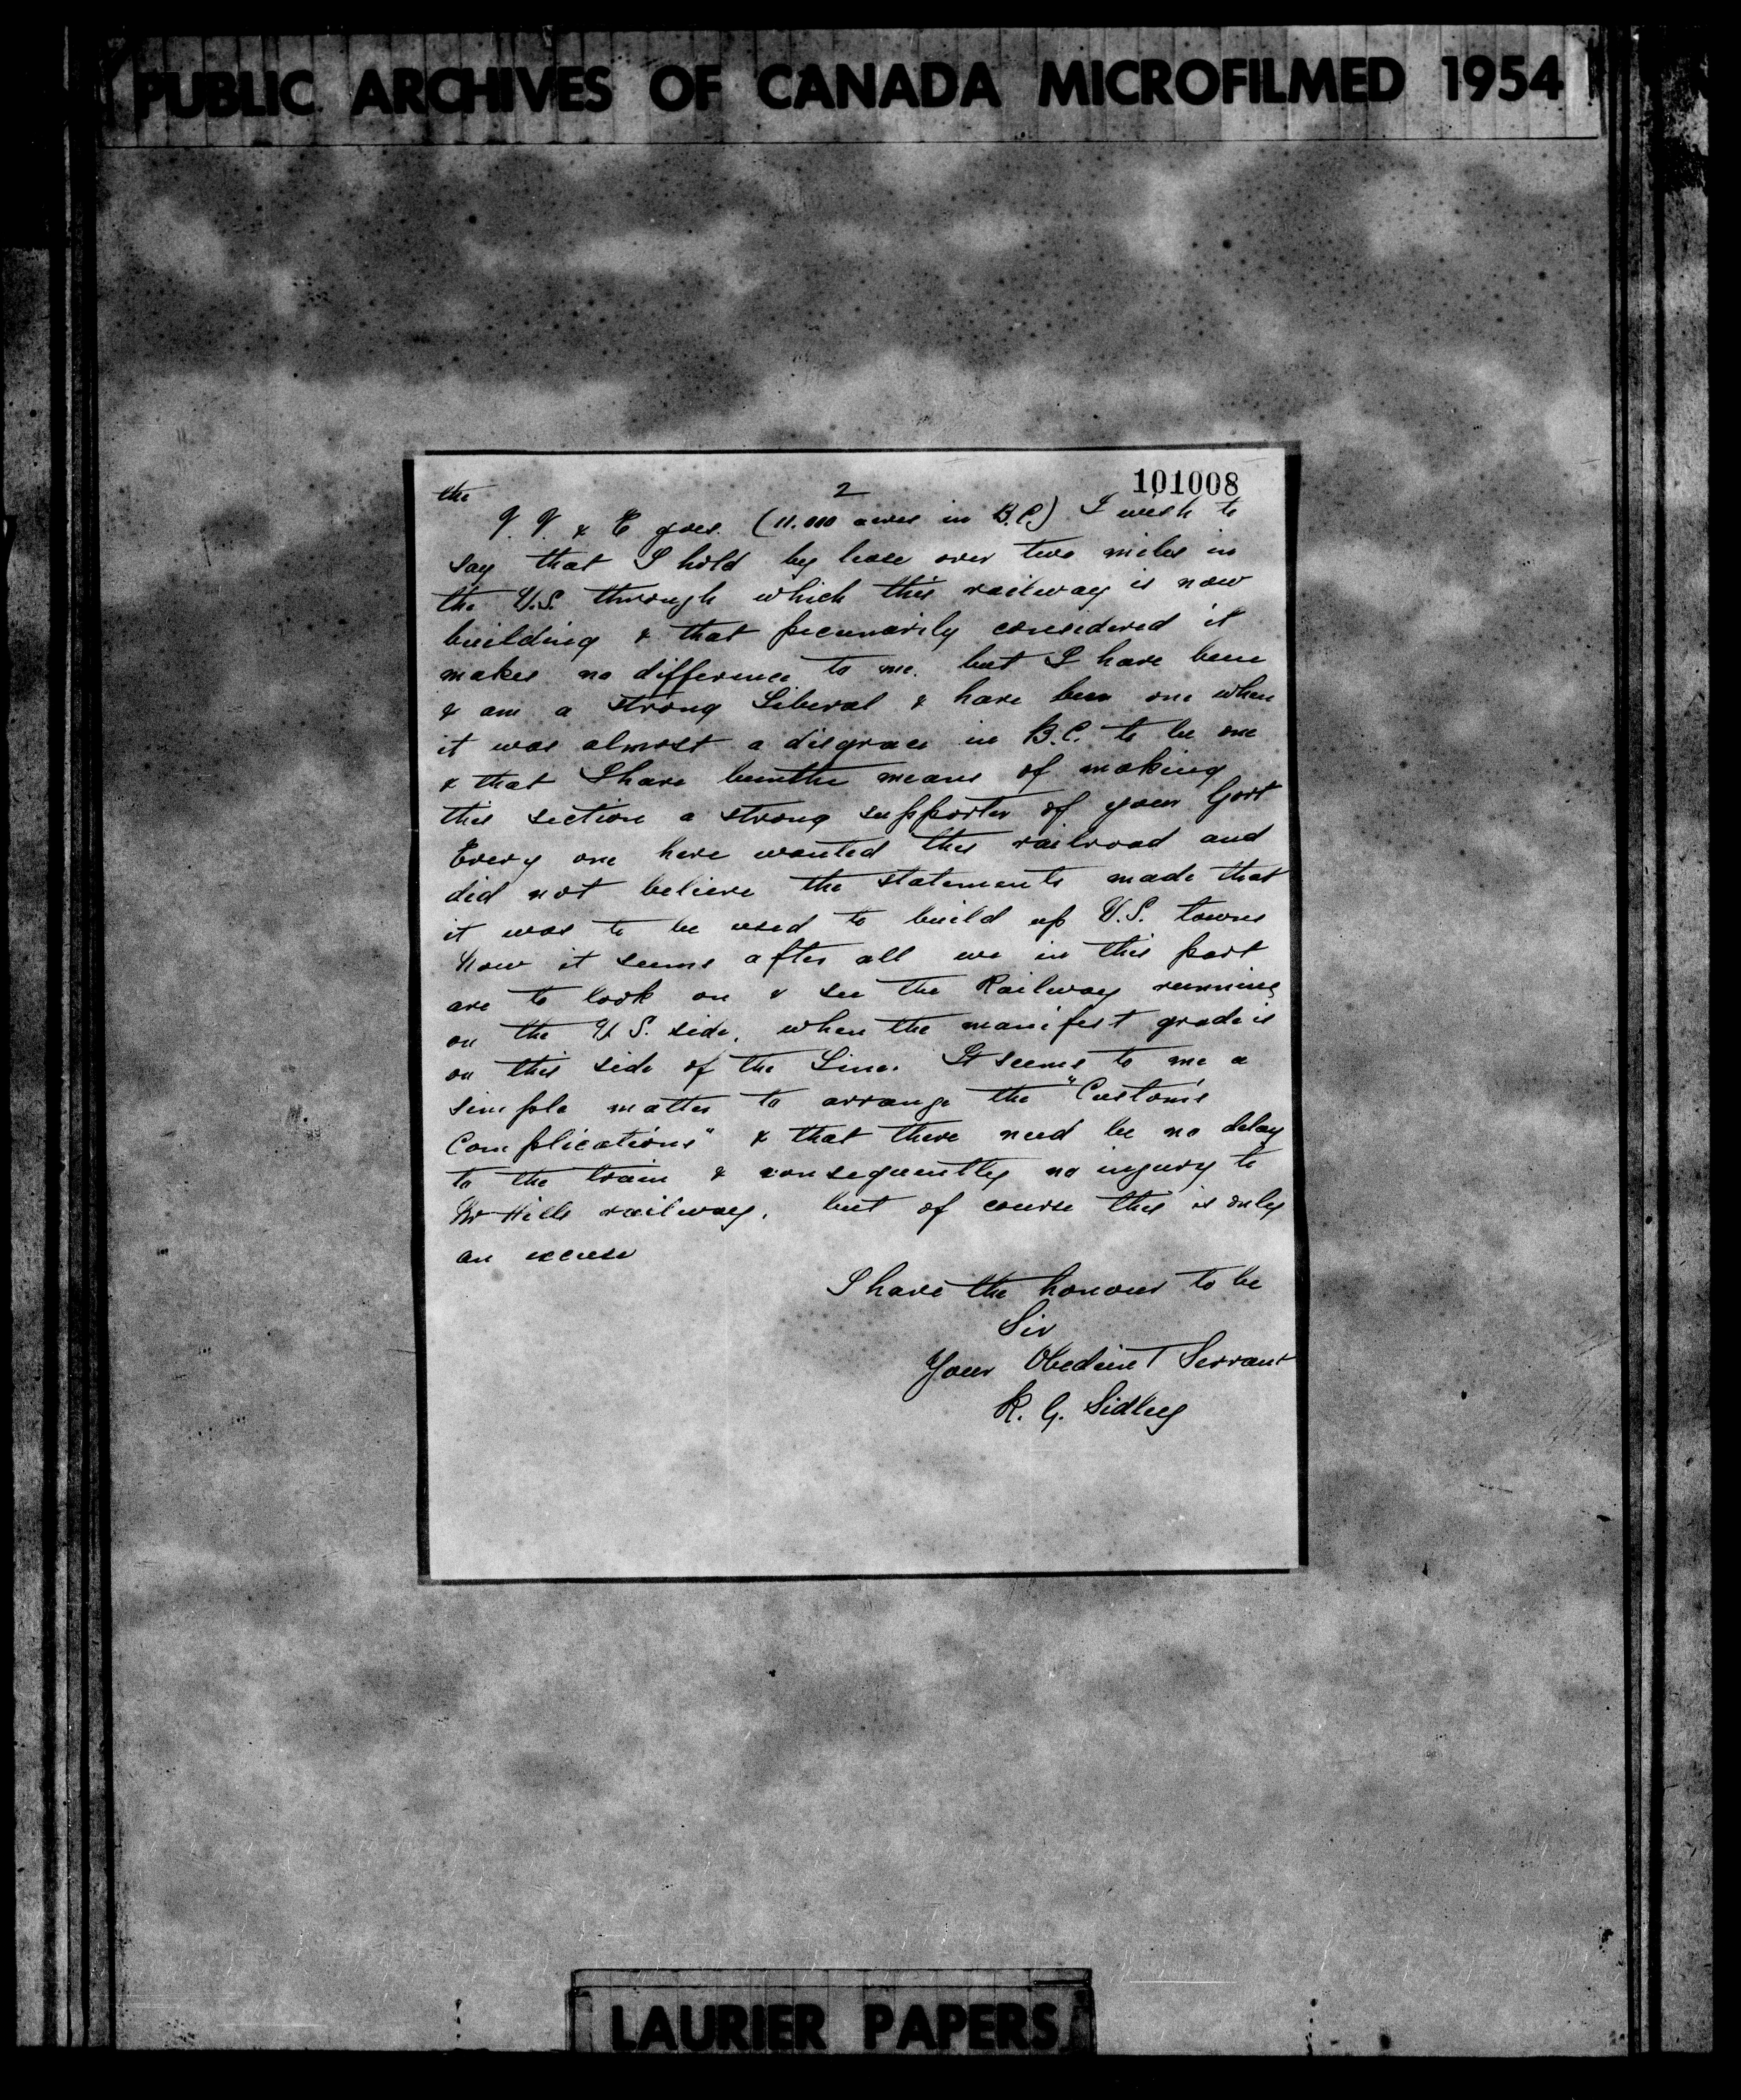 PUBLIC ARCHIVES OF CANADA MICROFILMED 1954
101008
2
the
V. V. & E goes. (11.000 acres in B.C.) I wish to
say that I hold by lease over two miles in
the U.S. through which this railway is now
building & that pecunarily considered it
makes no difference to me. but I have been
& am a strong Liberal & have been one when
it was almost a disgrace in B.C. to be one
& that I have been the means of making
this section a strong supporter of your Govt
Every one here wanted this railroad and
did not believe the statements made that
it was to be used to build up U.S. towns
Now it seems after all we in this part
are to look on & see the Railway running
on the U.S. side, when the manifest grade is
on this side of the Line. It seems to me a
simple matter to arrange the "Custom's
Complications" & that there need be no delay
to the train & consequently no injury to
Mr Hills railway, but of course this is only
an excuse
I have the honour to be
Sir
Your Obedient Servant
R. G. Sidley
LAURIER PAPERS